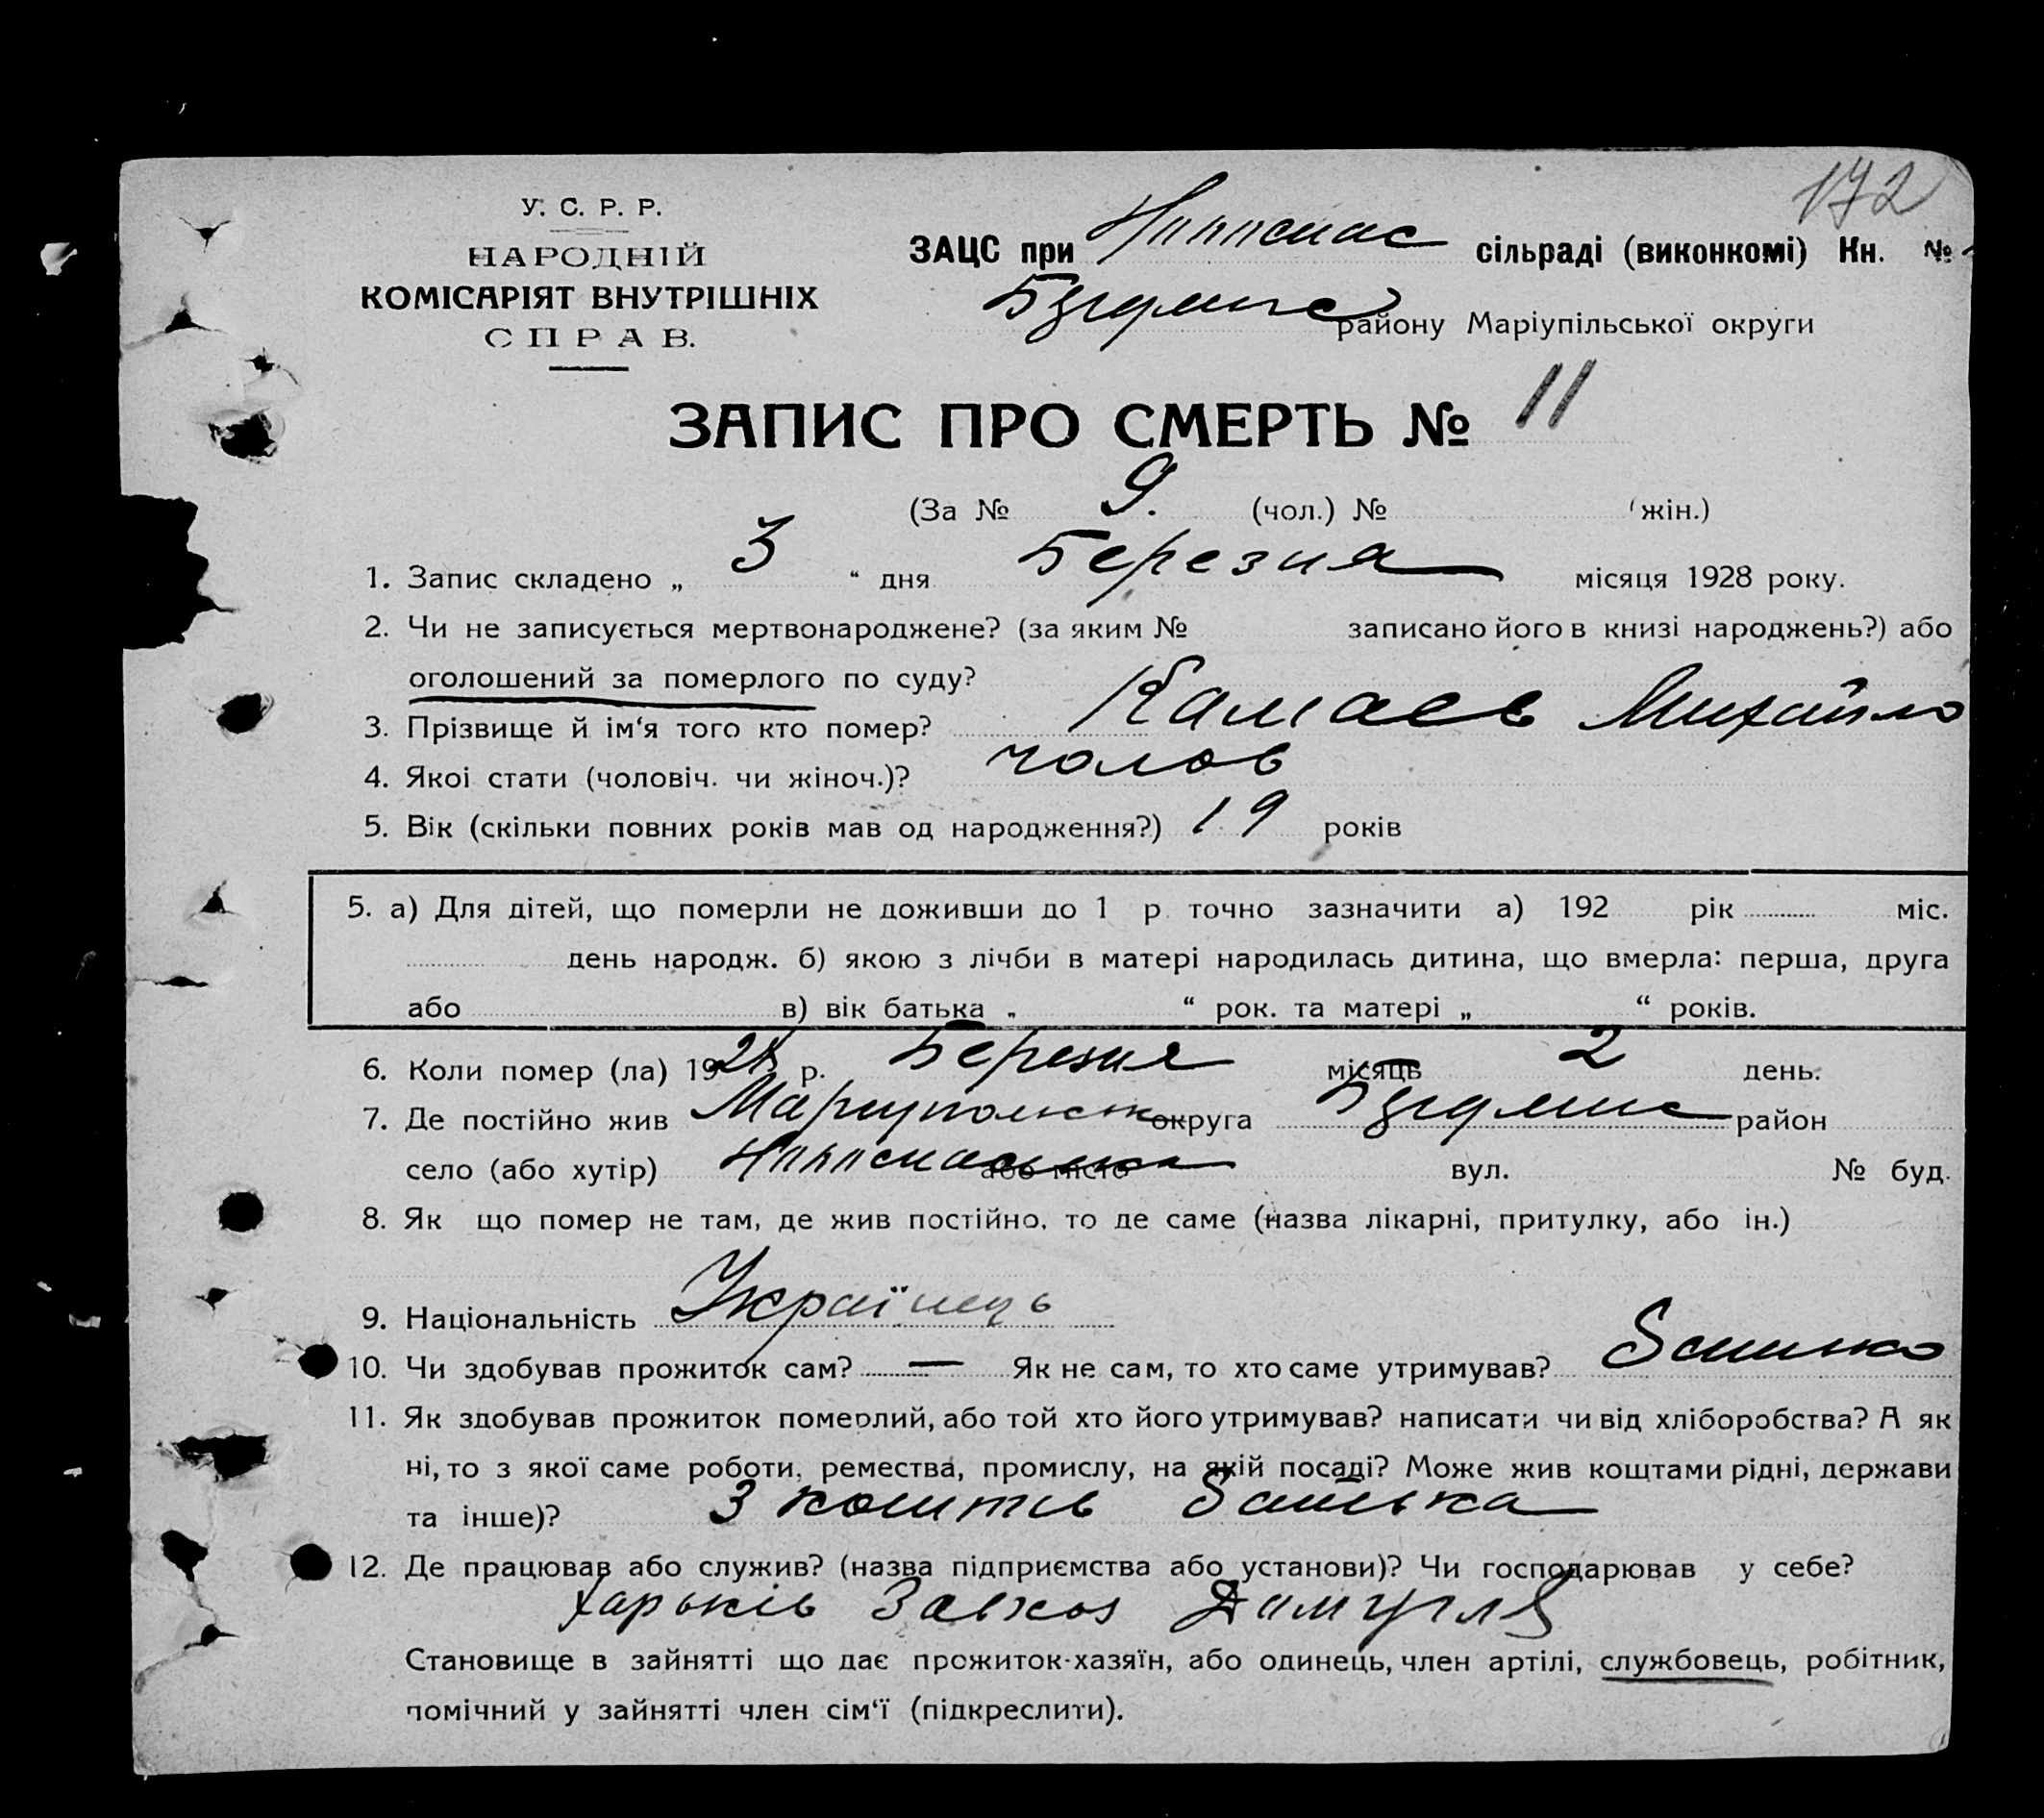 172
У. С. Р. Р.
НАРОДНІЙ
КОМІСАРІЯТ ВНУТРІШНІХ
СПРАВ.
ЗАЦС при сільраді (виконкомі) Кн. №
району Маріупільської округи
ЗАПИС ПРО СМЕРТЬ № 11
(За № 9. (чол.) № (жін.)
1. Запис складено „ 3 “ дня Березня місяця 1928 року.
2. Чи не записується мертвонароджене? (за яким № записано його в книзі народжень?) або
оголошений за померлого по суду?
3. Прізвище й ім‘я того кто помер? Камаев Михайло
4. Якоі стати (чоловіч. чи жіноч.)? чолов
5. Вік (скільки повних років мав од народження?) 19 років
5. а) Для дітей, що померли не доживши до 1 р. точно зазначити а) 192 рік міс.
день народж. б) якою з лічби в матері народилась дитина, що вмерла: перша, друга
або в) вік батька „ “ рок. та матері „ “ років.
6. Коли помер (ла) 1928 р. Березня місяць 2 день.
7. Де постійно жив округа район
село (або хутір) або місто вул. № буд.
8. Як що помер не там, де жив постійно, то де саме (назва лікарні, притулку, або ін.)
9. Національність Українець
10. Чи здобував прожиток сам? — Як не сам, то хто саме утримував? Батько
11. Як здобував прожиток померлий, або той хто його утримував? написати чи від хліборобства? А як
ні, то з якої саме роботи, ремества, промислу, на якій посаді? Може жив коштами рідні, держави
та інше)? З коштів Батька
12. Де працював або служив? (назва підприємства або установи)? Чи господарював у себе?
Харьків
Становище в зайнятті що дає прожиток-хазяїн, або одинець, член артілі, службовець, робітник,
помічний у зайнятті член сім‘ї (підкреслити).